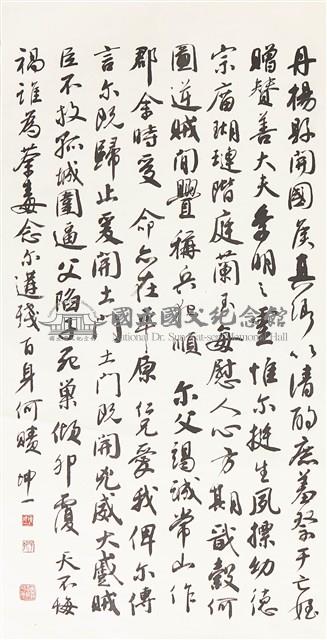 丹楊縣開國侯真卿以清酌庶羞祭于亡姪
贈贊善大夫季明之靈惟爾挺生夙標幼德
宗廟瑚璉階庭蘭玉每慰人心方期戩穀何
圖逆賊間釁稱兵犯順尔父竭誠常山作
郡余時受命亦在平原仁兄愛我俾尔傳
言尔既歸止爰開土門土門既開兇威大蹙賊
臣不救孤城圍逼父陷子死巢傾卵覆天不悔
禍誰為荼毒念尔遘殘百身何贖坤一
國立國父紀念館
National Dr. Sun Yat-sen Memorial Hall